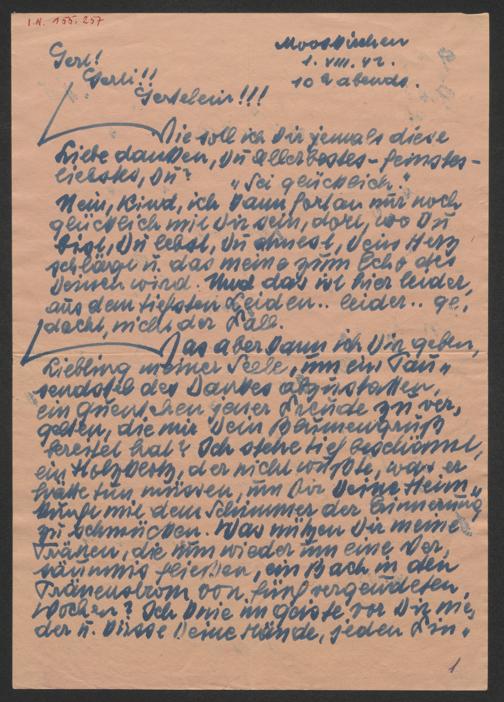 I.N. 155.257
Mooskirchen
1. VIII. 42.
10 h abends.
Gerl!
Gerli!!
Gerlelein!!!
Wie soll ich Dir jemals diese
Liebe danken, Du Allerbestes-feinstes-
liebstes, Du? „Sei glücklich."
Nein, Kind, ich kann fortan nur noch
glücklich mit Dir sein, dort, wo Du
bist, Du lebst, Du atmest, Dein Herz
schlägt u. das meine zum Echo des
Deinen wird. Und das ist hier leider,
aus dem tiefsten Leiden.. leider.. ge,
dacht, nicht der Fall.
Was aber kann ich Dir geben,
Liebling meiner Seele, um ein Tau"
sendstel des Dankes abzustatten,
ein Quentchen jener Freude zu ver,
gelten, die mir Dein Blumengruß
bereitet hat? Ich stehe tief beschämt,
ein Holzklotz, der nicht wußte, was er
hätte tun müssen, um Dir Deine Heim"
kunft mit dem Schimmer der Erinnerung
zu schmücken. Was nützen Dir meine
Tränen, die nun wieder um eine Ver,
säumnis fließen, ein Bach in den
Tränenstrom von fünf vergeudeten
Wochen? Ich knie im Geiste vor Dir nie,
der u. küsse Deine Hände, jeden Fin"
1